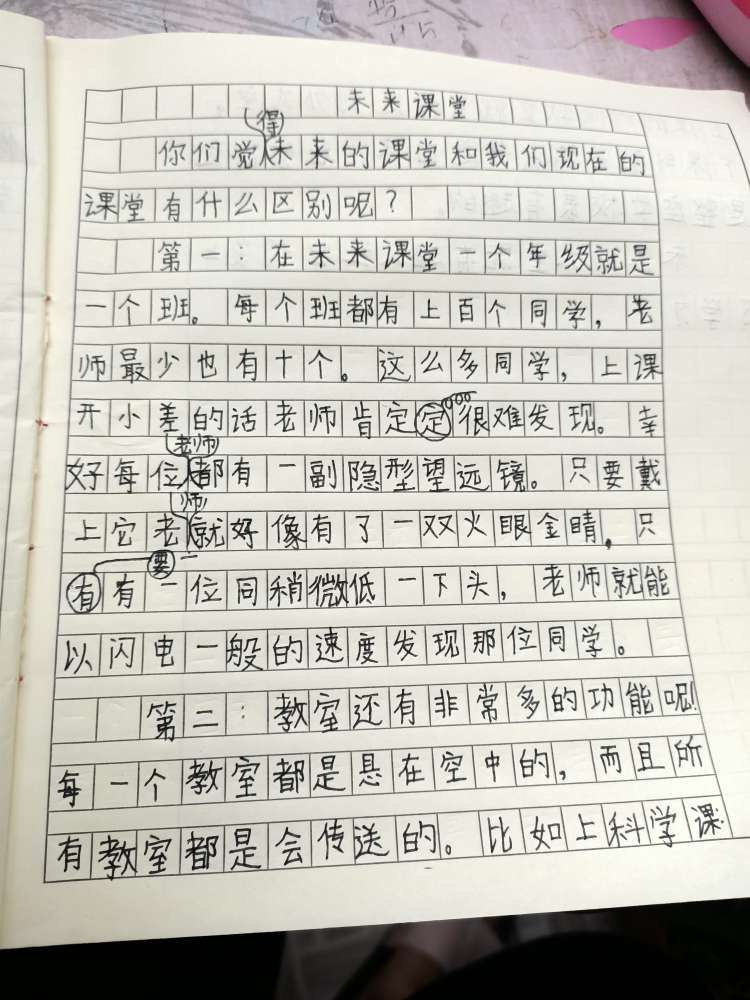 未来课堂
得
你们觉未来的课堂和我们现在的
课堂有什么区别呢？
第一：在未来课堂一个年级就是
一个班。每个班都有上百个同学，老
师最少也有十个。这么多同学，上课
开小差的话老师肯定定很难发现。幸
老师
好每位都有一副隐型望远镜。只要戴
师
上它老就好像有了一双火眼金睛。只
要
有有一位同稍微低一下头，老师就能
以闪电一般的速度发现那位同学。
第二：教室还有非常多的功能呢！
每一个教室都是悬在空中的，而且所
有教室都是会传送的。比如上科学课